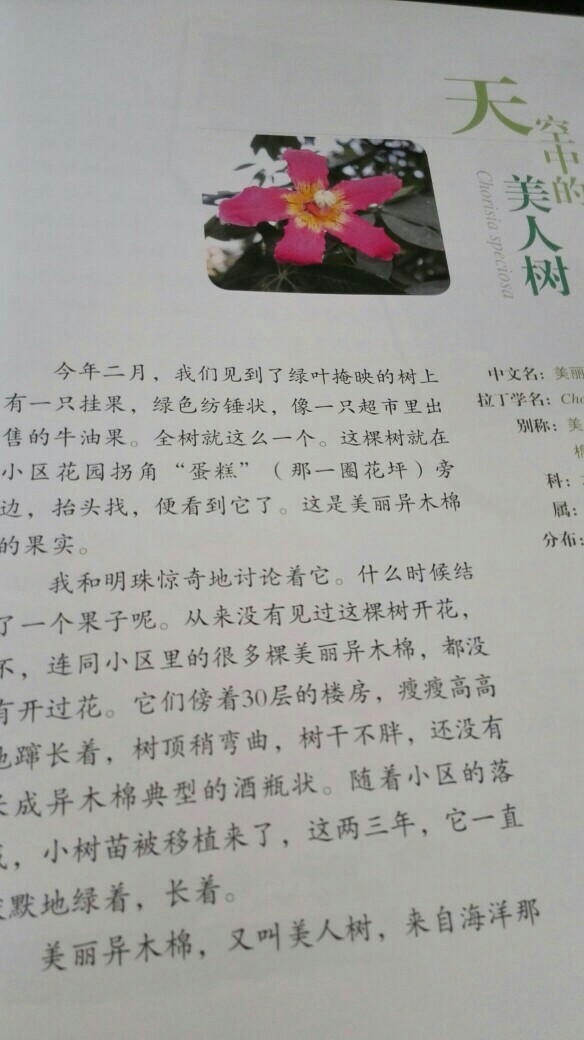 天空中的
美人树
Chorisia speciosa
今年二月，我们见到了绿叶掩映的树上
有一只挂果，绿色纺锤状，像一只超市里出
售的牛油果。全树就这么一个。这棵树就在
小区花园拐角“蛋糕”（那一圈花坪）旁
边，抬头找，便看到它了。这是美丽异木棉
的果实。
我和明珠惊奇地讨论着它。什么时候结
了一个果子呢。从来没有见过这棵树开花，
不，连同小区里的很多棵美丽异木棉，都没
有开过花。它们傍着30层的楼房，瘦瘦高高
地蹿长着，树顶稍弯曲，树干不胖，还没有
长成异木棉典型的酒瓶状。随着小区的落
，小树苗被移植来了，这两三年，它一直
默地绿着，长着。
美丽异木棉，又叫美人树，来自海洋那
中文名：美丽
拉丁学名：Cho
别称：美
科：
属：
分布：